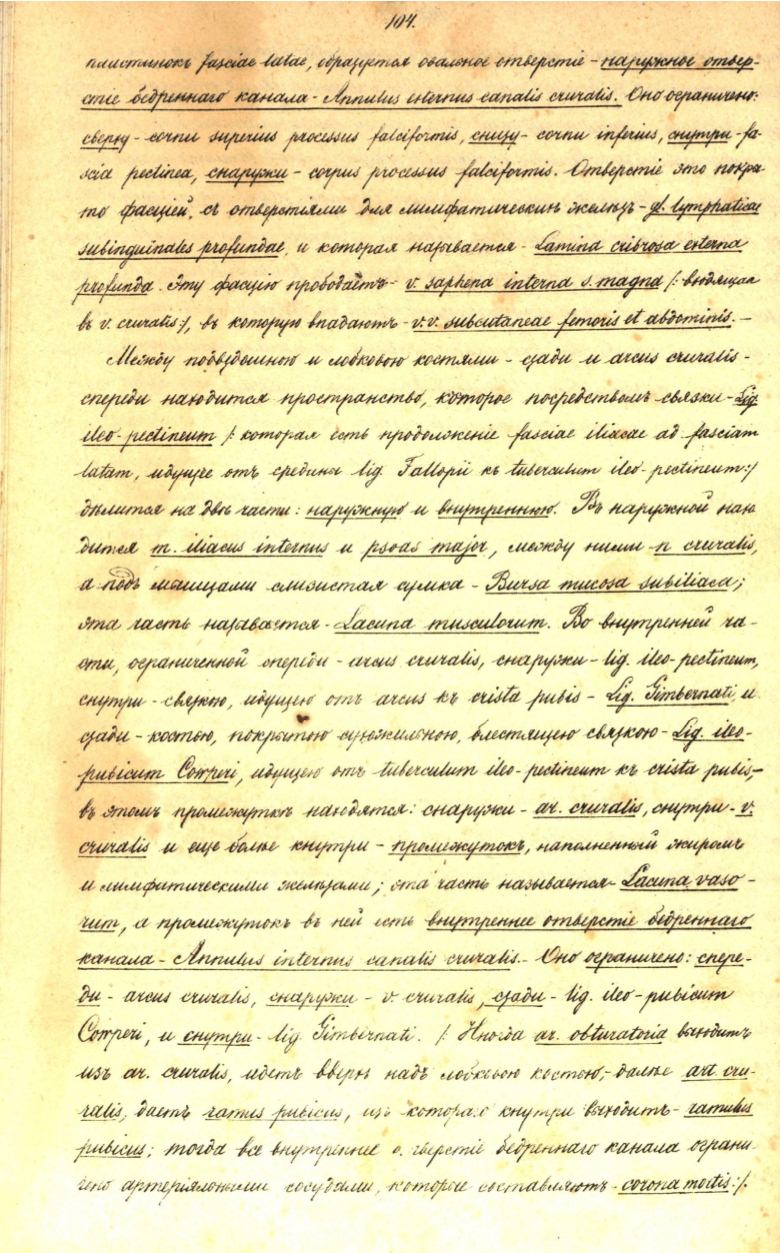 104.
пластинокъ fasciae latae, образуется овальное отверстіе - наружное отвер-
стіе бедреннаго канала - Annulus externus canalis cruralis. Оно ограничено:
сверху - cornu superius processus falciformis, снизу - cornu inferius, снутри - fa-
scia pectinea, снаружи - corpus processus falciformis. Отверстіе это покры-
то фасціей, съ отверстіями для лимфатическихъ железъ - gl. lymphaticae
subinguinales profundae, и которая называется - Lamina cribrosa externa
profunda. Эту фасцію прободаетъ - v. saphena interna s. magna /: входящая
въ v. cruralis :/, въ которую впадаютъ - v.v. subcutaneae femoris et abdominis. -
Между подвздошною и лобковою костями - сзади и arcus cruralis -
спереди находится пространство, которое посредствомъ связки - Lig.
ileo-pectineum /: которая есть продолженіе fasciae iliacae ad fasciam
latam, идущее отъ средины lig. Fallopii къ tuberculum ileo-pectineum :/
дѣлится на двѣ части: наружную и внутреннюю. Въ наружной нахо-
дится m. iliacus internus и psoas major, между ними - n. cruralis,
а подъ мышцами слизистая сумка - Bursa mucosa subiliaca;
эта часть называется - Lacuna musculorum. Во внутренней ча-
сти, ограниченной спереди - arcus cruralis, снаружи - lig. ileo-pectineum,
снутри - связкою, идущею отъ arcus къ crista pubis - Lig. Gimbernati, и
сзади - костью, покрытою сухожильною, блестящею связкою - Lig. ileo-
pubicum Cowperi, идущею отъ tuberculum ileo-pectineum къ crista pubis, -
въ этомъ промежуткѣ находятся: снаружи - ar. cruralis, снутри - v.
cruralis и еще болѣе кнутри - промежутокъ, наполненный жиромъ
и лимфатическими железами; эта часть называется - Lacuna vaso-
rum, а промежутокъ въ ней есть внутреннее отверстіе бедреннаго
канала - Annulus internus canalis cruralis. - Оно ограничено: спере-
ди - arcus cruralis, снаружи - v. cruralis, сзади - lig. ileo-pubicum
Cowperi, и снутри - lig. Gimbernati. /: Иногда ar. obturatoria выходитъ
изъ ar. cruralis, идетъ вверхъ надъ лобковою костью, - далѣе art. cru-
ralis, даетъ ramus pubicus, изъ котораго кнутри выходитъ - ramulus
pubicus; тогда все внутреннее отверстіе бедреннаго канала ограни-
чено артеріяльными сосудами, которые составляютъ - corona mortis :/.